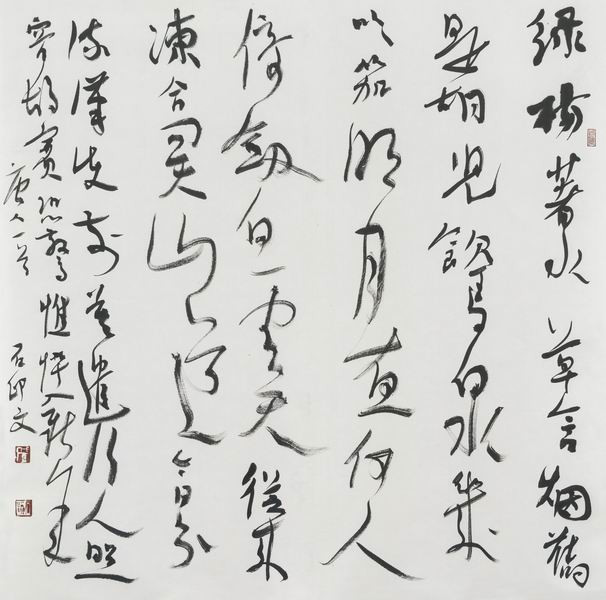 綠楊著水草含烟舊
是胡兒飲馬泉幾
吹笳明月何人
倚劍白雲天從來
凍合關山路今日分
流漢使前莫遣行人照
容恐驚憔悴入新年
唐人一首